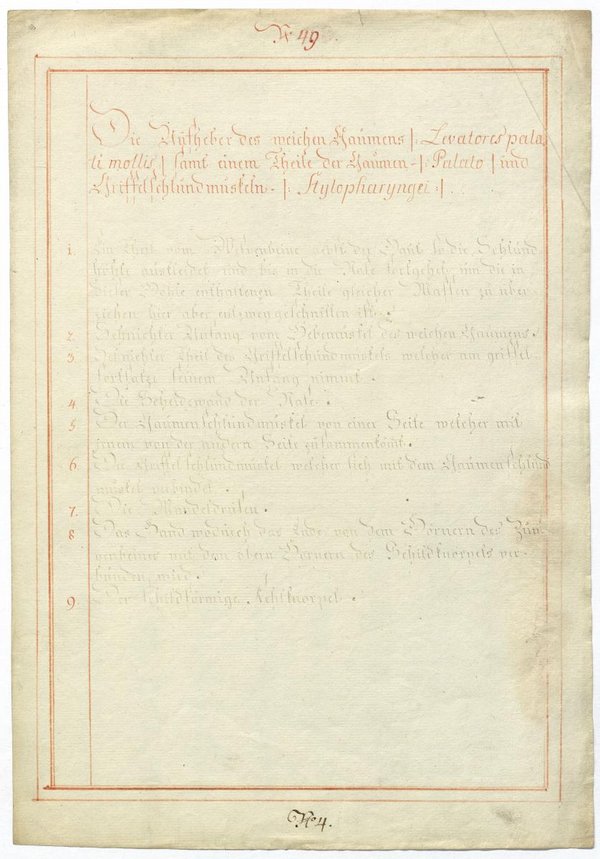 N 49.
Die Aufheber des weichen Gaumens |: Levatores pala-
ti mollis :| samt einem Theile der Gaumen- |: Palato :| und
Griffelschlundmuskeln- |: Stylopharyngei :|
1. Ein Theil vom der Haut so die Schlund
höhle auskleidet und bis in die Nase fortgehet um die in
dieser Höhle enthaltenen Theile gleicher Massen zu über-
ziehen hier aber entzwey geschnitten ist.
2. Sehnichter Anfang vom Hebemuskel des weichen Gaumens.
3. Theil des Griffelschlundmuskels welcher am griffel-
fortsatze seinem Anfang nimmt.
4. Die Scheidewand der Nase.
5. Der Gaumenschlundmuskel von einer Seite welcher mit
einem von der andern Seite zusammenkömt.
6. Die Griffelschlundmuskel welcher sich mit dem Gaumenschlund
muskel verbindet.
7. Die Mandeldrüsen.
8. Das Band wodurch das Ende von dem Hörnern des Zun-
genbeines mit den obern Hörnern des Schildknorpels ver-
bunden wird.
9. Der schildförmige Kehlknorpel.
No 4.